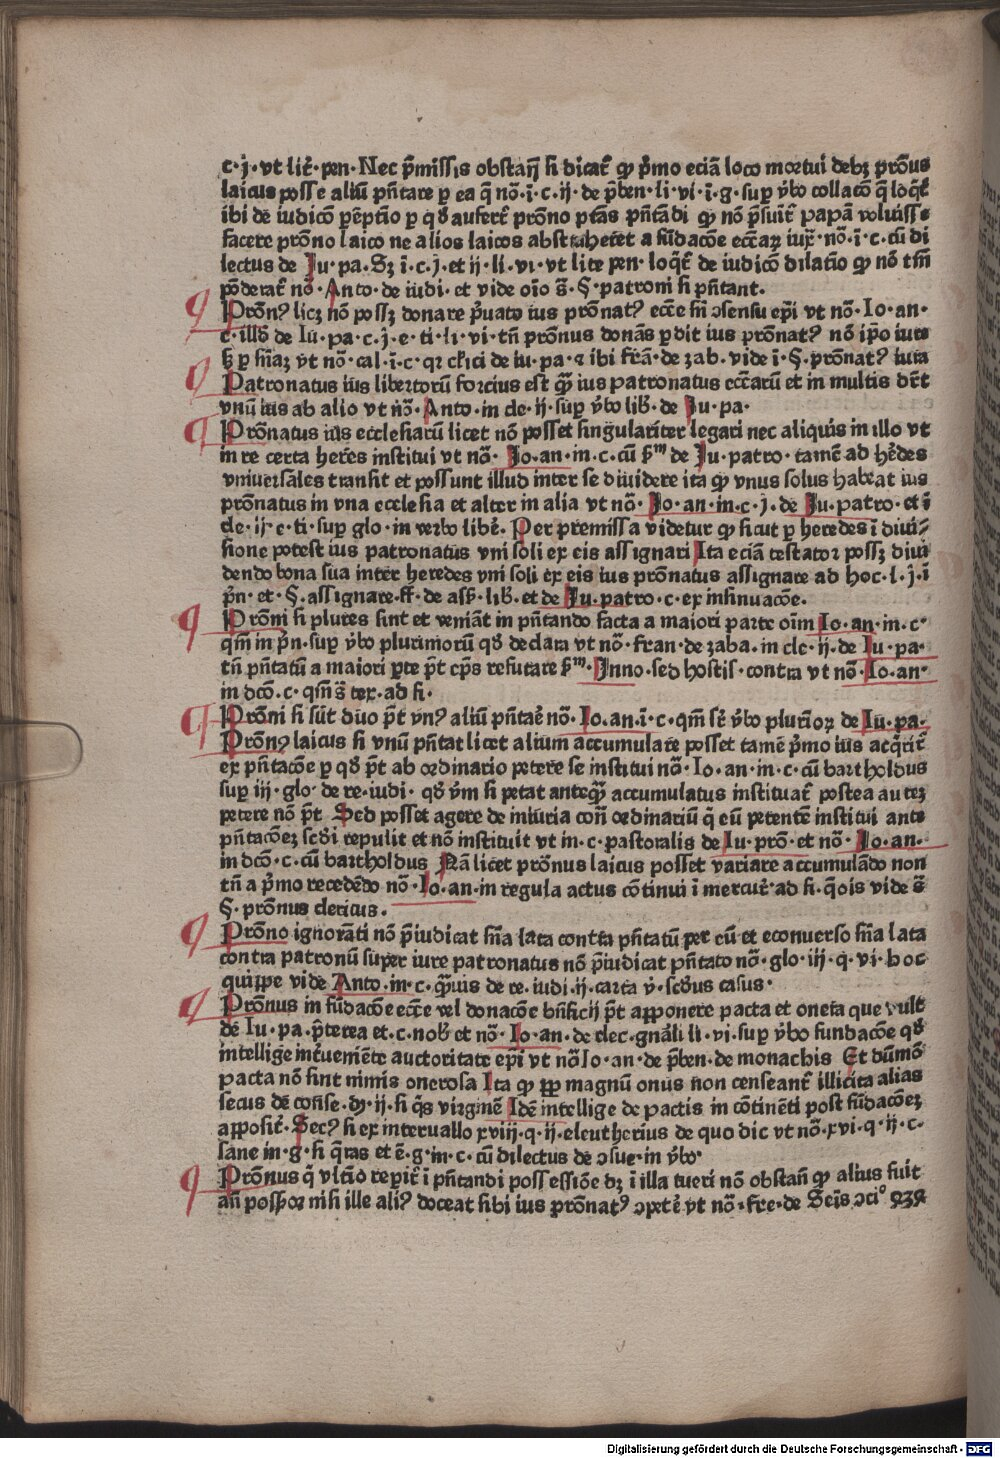 c·j·vt lit̄·pen·Nec p̄missis obstan̄ si dicat̄ qp p̄mo eciā loco mortui debꝫ prōnus
laicus posse aliū pn̄tare p ea q̄ nō·ī·c·ij·de p̄ben·li·vi·ī·g·sup v̄bo collacōn q̄ loq̄t̄
ibi de iudicō pēptio p qd̄ aufert̄ prōno ptās pn̄tādi qp nō p̄suit̄ papā voluisse
facere prōno laico ne alios laicos abstraheret a fūdacōe eccaꝝ iux̄·nō·ī·c·cū di
lectus de Iu·pa·Sꝫ ī·c·j·et ij·li·vi·vt lite pen·loq̄t̄ de iudicō dilatio qp nō tm̄
pōderat̄ nō·Anto·de iudi·et vide oīo s̄·§·patroni si pn̄tant.
Prōnꝰ licꝫ nō possꝫ donare p̄uato ius prōnatꝰ ecce sn̄ ɔsensu ep̄i vt nō·Io·an·
c·illd̄ de Iu·pa·c·j·e·ti·li·vi·tn̄ prōnus donās pdit ius prōnatꝰ nō ip̄o iure
sꝫ p sn̄iaꝫ vt nō·cal·ī·c·qꝛ cl̄ici de iu·pa·ꝛ ibi frā·de zab·vide ī·§·prōnatꝰ iura
Patronatus ius libertorū forcius est q̄ꝫ ius patronatus eccarū et in multis dr̄t
vnū ius ab alio vt nō·Anto·in cle·ij·sup v̄bo lib̄·de Iu·pa·
Prōnatus ius ecclesiarū licet nō posset singulariter legari nec aliquis in illo vt
in re certa heres institui vt nō·Io·an·in·c·cū sᵐ de Iu·patro·tamē ad hēdes
vniuersales transit et possunt illud inter se diuidere ita qp vnus solus habeat ius
prōnatus in vna ecclesia et alter in alia vt nō·Io·an·in·c·j·de Iu·patro·et ī
cle·ij·e·ti·sup glo·in verbo libē·Per premissa videtur qp sicut p heredes ī diui⸗
sione potest ius patronatus vni soli ex eis assignari Ita eciā testator possꝫ diui
dendo bona sua inter heredes vni soli ex eis ius prōnatus assignare ad hoc·l·j·ī
p̄n·et·§·assignare·ff·de ass̄·lib̄·et de Iu·patro·c·ex insinuacōe.
Prōni si plures sint et veniāt in pn̄tando facta a maiori parte oīm Io·an·in·c·
qm̄ in p̄n·sup v̄bo plurimorū qd̄ declara vt nō·fran·de zaba·in cle·ij·de Iu·pa·
tn̄ pn̄tatū a maiori pte p̄t ep̄s refutare sᵐ·Inno·sed hostis·contra vt nō·Io·an·
in dcō·c·qm̄ s̄ tex·ad fi·
Prōni si sūt duo p̄t vnꝰ aliū pn̄tare nō·Io·an·ī·c·qm̄ sē v̄bo plurioꝝ de Iu·pa·
Prōnꝰ laicus si vnū pn̄tat licet alium accumulare posset tamē p̄mo ius acq̄rit̄
ex pn̄tacōe p qd̄ p̄t ab ordinario petere se institui nō·Io·an·in·c·cū bartholdus
sup iij·glo·de re·iudi·qd̄ v̄m si petat anteq̄ꝫ accumulatus instituat̄ postea autez
petere nō p̄t Sed posset agere de iniuria con̄ ordinariū q̄ eū petentē institui ante
pn̄tacōez scd̄i repulit et nō instituit vt in·c·pastoralis de Iu·prō·et nō·Io·an·
in dcō·c·cū bartholdus Nā licet prōnus laicus posset variare accumulādo non
tn̄ a p̄mo recedēdo nō·Io·an·in regula actus cōtinui ī mercur̄·ad fi·q̄ois vide s̄
§·prōnus clericus.
Prōno ignorāti nō p̄iudicat sn̄ia lata contra pn̄tatū per eū et econuerso sn̄ia lata
contra patronū super iure patronatus nō p̄iudicat pn̄tato nō·glo·iij·q·vi·hoc
quippe vide Anto·in·c·q̄ꝫuis de re·iudi·ij·carta v̄·scd̄us casus·
Prōnus in fūdacōe ecce vel donacōe bn̄ficij p̄t apponere pacta et onera que vult
dē Iu·pa·p̄terea et·c·nob̄ et nō·Io·an·de elec·gnāli li·vi·sup v̄bo fundacōe qd̄
intellige intˀueniēte auctoritate ep̄i vt nō Io·an·de p̄ben·de monachis Et dūmō
pacta nō sint nimis onerosa Ita qp ꝓp magnū onus non censeant̄ illicita alias
secus dē conse·dꝫ·ij·si q̄s virginē Idē intellige de pactis in cōtinēti post fūdacōez
apposit̄·Secꝰ si ex interuallo xviij·q·ij·eleutherius de quo dic vt nō·xvi·q·ij·c·
sane in·g·si q̄ras et ē·g·in·c·cū dilectus de ɔsue·in v̄bo·
Prōnus q̄ vltio repit̄ ī pn̄tandi possessiōe dꝫ ī illa tueri nō obstan̄ qp alius fuit
an̄ posspoꝝ nisi ille aliꝰ doceat sibi ius prōnatꝰ ɔpetē vt nō·fre·de Seīs ɔcio
Digitalisierung gefördert durch die Deutsche Forschungsgemeinschaft - DFG